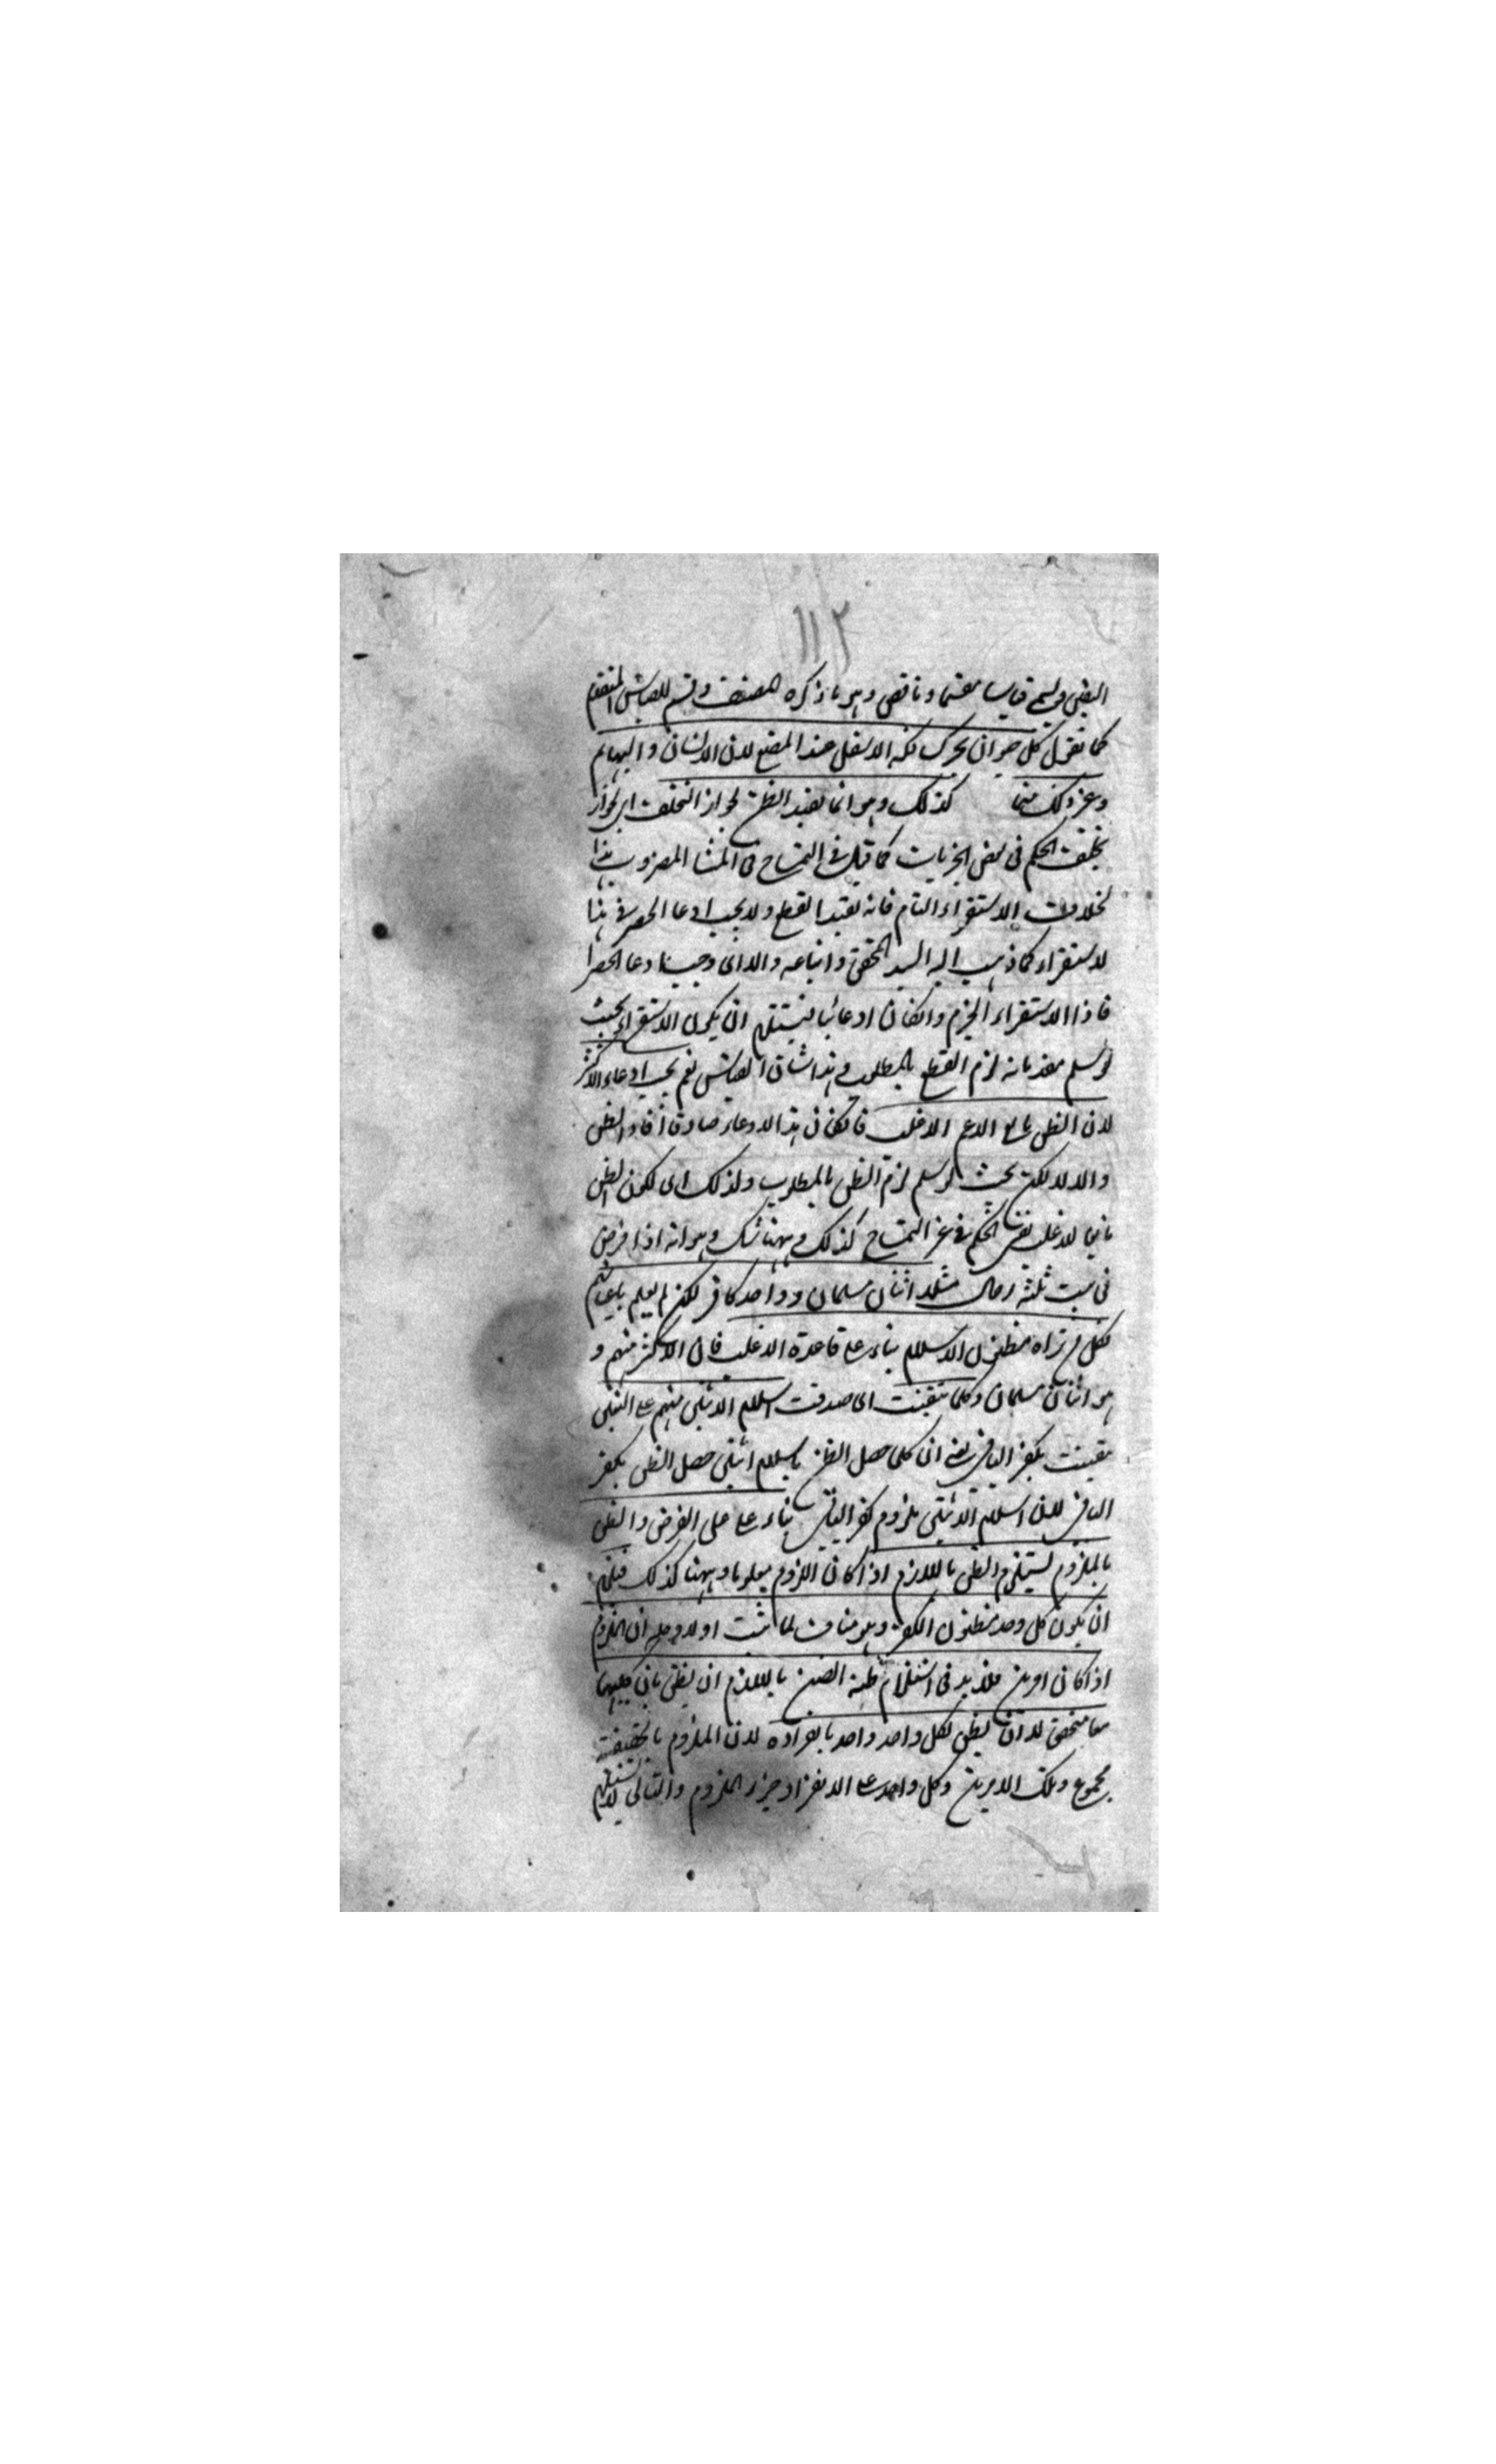 ١١٢
اليقين ويسمى قياسا مقسما وناقص وهو ما ذكره المصنف وقسيم للقياس المنقسم
كما تقول كل حيوان يحرك فكه الاسفل عند المضغ لان الانسان والبهايم
وغير ذلك مما كذلك وهو انما يفيد الظن لجواز التخلف اى لجواز
تخلف الحكم فى بعض الجزئيات كما قيل فى التمساح فى المثا المضروب هذا
بخلاف الاستقراء التام فانه يفيد القطع ولا يجب ادعا الحصر فى هذا
الاستقراء كما ذهب اليه السيد المحقق واتباعه والا ان وجب ادعا الحصر
فاذا الاستقراء الجزم وانكان ادعائيا يستلزم ان يكون الاستقراء بحيث
لو سلم مقدماته لزم القطع بالمطلوب وهذا شان القياس نعم يجب ادعاء الاكثر
لان الظن تابع الاعم الاغلب فان كان هذا الادعاء صادقا افاد الظن
والا لا لكن بحيث لو سلم لزم الظن بالمطلوب ولذلك اى لكون الظن
تابعا للاغلب بقى الحكم فى غير التمساح كذلك وههنا شك وهو انه اذا فرض
فى بيت ثلثة رجال مثلا اثنان مسلمان وواحد كافر لكن لم يعلم باعيانهم
فكل من تراه مظنون الاسلام بناء على قاعدة الاغلب فان الاكثر منهم و
هو اثنان مسلمان وكلما تيقنت اى صدقت اسلام الاثنين منهم على التعيين
تيقنت بكفر الباقى يعنى ان كلما حصل الظن باسلام اثنين حصل الظن بكفر
الباقى لان اسلام الاثنين ملزوم كفر الباقى بناء على على الفرض والظن
بالملزوم يستلزم الظن باللازم اذا كان اللزوم معلوما وههنا كذلك فيلزم
ان يكون كل واحد مظنون الكفر وهو مناف لما ثبت اولا وحله ان الملزوم
اذا كان امرين فلا بد فى استلزام ظنه الظن باللازم ان يظن بان كليهما
معا متحقق لا ان يظن لكل واحد واحد بانفراده لان الملزوم بالحقيقة
مجموع ذلك الامرين وكل واحد على الانفراد جزء الملزوم والتالى لا يستلزم